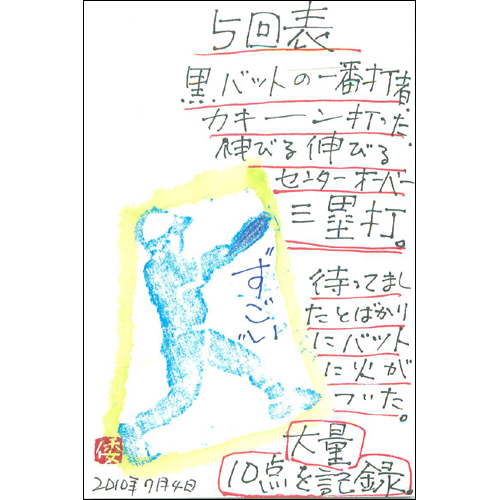 5回表
黒バットの一番打者
カキーン打った.
伸びる伸びる
センターオーバー
三塁打。
"すごい"
待ってまし
たとばかり
にバット
に火が
ついた。
大量
10点を記録.
2010年7月4日